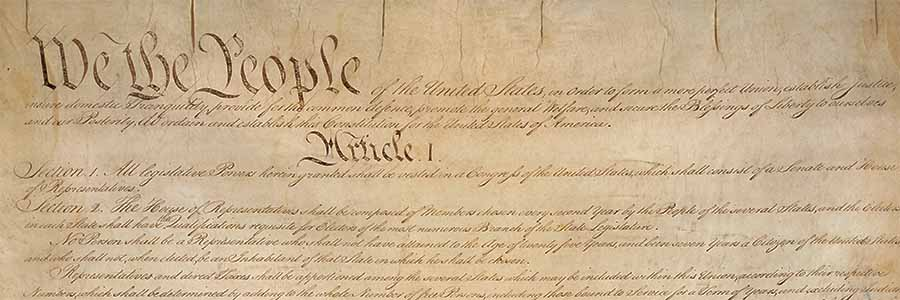 We the People of the United States, in Order to form a more perfect Union, establish Justice,
insure domestic Tranquility, provide for the common defence, promote the general Welfare, and secure the Blessings of Liberty to ourselves
and our Posterity, do ordain and establish this Constitution for the United States of America.
Article. I.
Section 1. All legislative Powers herein granted shall be vested in a Congress of the United States, which shall consist of a Senate and House
of Representatives.
Section 2. The House of Representatives shall be composed of Members chosen every second Year by the People of the several States, and the Electors
in each State shall have the Qualifications requisite for Electors of the most numerous Branch of the State Legislature.
No Person shall be a Representative who shall not have attained to the Age of twenty five Years, and been seven Years a Citizen of the United States,
and who shall not, when elected, be an Inhabitant of that State in which he shall be chosen.
Representatives and direct Taxes shall be apportioned among the several States which may be included within this Union, according to their respective
Numbers, which shall be determined by adding to the whole Number of free Persons, including those bound to Service for a Term of Years, and excluding Indians